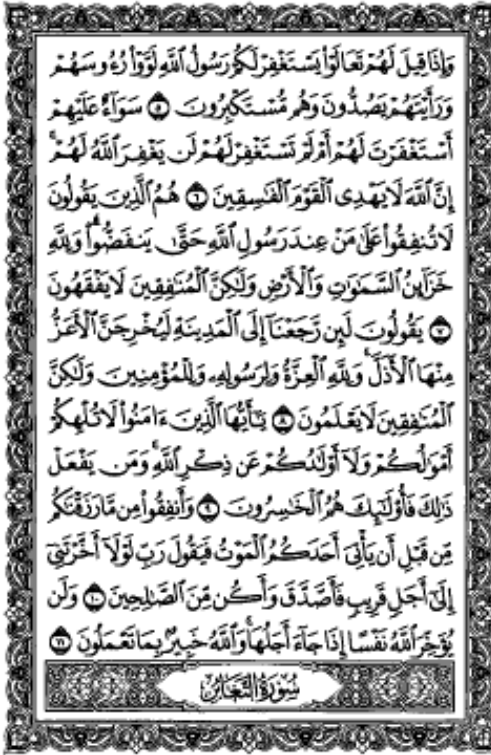 وَإِذَا قِيلَ لَهُمْ تَعَالَوْا۟ يَسْتَغْفِرْ لَكُمْ رَسُولُ ٱللَّهِ لَوَّوْا۟ رُءُوسَهُمْ
وَرَأَيْتَهُمْ يَصُدُّونَ وَهُم مُّسْتَكْبِرُونَ ۝٥ سَوَآءٌ عَلَيْهِمْ
أَسْتَغْفَرْتَ لَهُمْ أَمْ لَمْ تَسْتَغْفِرْ لَهُمْ لَن يَغْفِرَ ٱللَّهُ لَهُمْ ۚ
إِنَّ ٱللَّهَ لَا يَهْدِى ٱلْقَوْمَ ٱلْفَـٰسِقِينَ ۝٦ هُمُ ٱلَّذِينَ يَقُولُونَ
لَا تُنفِقُوا۟ عَلَىٰ مَنْ عِندَ رَسُولِ ٱللَّهِ حَتَّىٰ يَنفَضُّوا۟ ۗ وَلِلَّهِ
خَزَآئِنُ ٱلسَّمَـٰوَٰتِ وَٱلْأَرْضِ وَلَـٰكِنَّ ٱلْمُنَـٰفِقِينَ لَا يَفْقَهُونَ
۝٧ يَقُولُونَ لَئِن رَّجَعْنَآ إِلَى ٱلْمَدِينَةِ لَيُخْرِجَنَّ ٱلْأَعَزُّ
مِنْهَا ٱلْأَذَلَّ ۚ وَلِلَّهِ ٱلْعِزَّةُ وَلِرَسُولِهِۦ وَلِلْمُؤْمِنِينَ وَلَـٰكِنَّ
ٱلْمُنَـٰفِقِينَ لَا يَعْلَمُونَ ۝٨ يَـٰٓأَيُّهَا ٱلَّذِينَ ءَامَنُوا۟ لَا تُلْهِكُمْ
أَمْوَٰلُكُمْ وَلَآ أَوْلَـٰدُكُمْ عَن ذِكْرِ ٱللَّهِ ۚ وَمَن يَفْعَلْ
ذَٰلِكَ فَأُو۟لَـٰٓئِكَ هُمُ ٱلْخَـٰسِرُونَ ۝٩ وَأَنفِقُوا۟ مِن مَّا رَزَقْنَـٰكُم
مِّن قَبْلِ أَن يَأْتِىَ أَحَدَكُمُ ٱلْمَوْتُ فَيَقُولَ رَبِّ لَوْلَآ أَخَّرْتَنِىٓ
إِلَىٰٓ أَجَلٍ قَرِيبٍ فَأَصَّدَّقَ وَأَكُن مِّنَ ٱلصَّـٰلِحِينَ ۝١٠ وَلَن
يُؤَخِّرَ ٱللَّهُ نَفْسًا إِذَا جَآءَ أَجَلُهَا ۚ وَٱللَّهُ خَبِيرٌۢ بِمَا تَعْمَلُونَ ۝١١
سُورَةُ التَّغَابُنِ